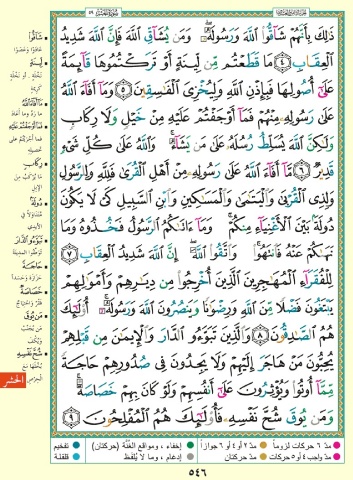 ذَٰلِكَ بِأَنَّهُمْ شَاقُّوا۟ ٱللَّهَ وَرَسُولَهُۥ ۖ وَمَن يُشَآقِّ ٱللَّهَ فَإِنَّ ٱللَّهَ شَدِيدُ
ٱلْعِقَابِ ٤ مَا قَطَعْتُم مِّن لِّينَةٍ أَوْ تَرَكْتُمُوهَا قَآئِمَةً
عَلَىٰٓ أُصُولِهَا فَبِإِذْنِ ٱللَّهِ وَلِيُخْزِىَ ٱلْفَـٰسِقِينَ ٥ وَمَآ أَفَآءَ ٱللَّهُ
عَلَىٰ رَسُولِهِۦ مِنْهُمْ فَمَآ أَوْجَفْتُمْ عَلَيْهِ مِنْ خَيْلٍ وَلَا رِكَابٍ
وَلَـٰكِنَّ ٱللَّهَ يُسَلِّطُ رُسُلَهُۥ عَلَىٰ مَن يَشَآءُ ۚ وَٱللَّهُ عَلَىٰ كُلِّ شَىْءٍ
قَدِيرٌ ٦ مَّآ أَفَآءَ ٱللَّهُ عَلَىٰ رَسُولِهِۦ مِنْ أَهْلِ ٱلْقُرَىٰ فَلِلَّهِ وَلِلرَّسُولِ
وَلِذِى ٱلْقُرْبَىٰ وَٱلْيَتَـٰمَىٰ وَٱلْمَسَـٰكِينِ وَٱبْنِ ٱلسَّبِيلِ كَىْ لَا يَكُونَ
دُولَةًۢ بَيْنَ ٱلْأَغْنِيَآءِ مِنكُمْ ۚ وَمَآ ءَاتَىٰكُمُ ٱلرَّسُولُ فَخُذُوهُ وَمَا
نَهَىٰكُمْ عَنْهُ فَٱنتَهُوا۟ ۚ وَٱتَّقُوا۟ ٱللَّهَ ۖ إِنَّ ٱللَّهَ شَدِيدُ ٱلْعِقَابِ ٧
لِلْفُقَرَآءِ ٱلْمُهَـٰجِرِينَ ٱلَّذِينَ أُخْرِجُوا۟ مِن دِيَـٰرِهِمْ وَأَمْوَٰلِهِمْ
يَبْتَغُونَ فَضْلًا مِّنَ ٱللَّهِ وَرِضْوَٰنًا وَيَنصُرُونَ ٱللَّهَ وَرَسُولَهُۥٓ ۚ أُو۟لَـٰٓئِكَ
هُمُ ٱلصَّـٰدِقُونَ ٨ وَٱلَّذِينَ تَبَوَّءُو ٱلدَّارَ وَٱلْإِيمَـٰنَ مِن قَبْلِهِمْ
يُحِبُّونَ مَنْ هَاجَرَ إِلَيْهِمْ وَلَا يَجِدُونَ فِى صُدُورِهِمْ حَاجَةً
مِّمَّآ أُوتُوا۟ وَيُؤْثِرُونَ عَلَىٰٓ أَنفُسِهِمْ وَلَوْ كَانَ بِهِمْ خَصَاصَةٌ ۚ
وَمَن يُوقَ شُحَّ نَفْسِهِۦ فَأُو۟لَـٰٓئِكَ هُمُ ٱلْمُفْلِحُونَ ٩
شَاقُّوا
لِينَةٍ
رِكَابٍ
دُولَةً
تَبَوَّءُو الدَّارَ
حَاجَةً
خَصَاصَةٌ
مَن يُوقَ
شُحَّ نَفْسِهِ
الحشر
مدّ ٦ حركات لزوماً مدّ ٢ أو ٤ أو ٦ جوازاً إخفاء، ومواقع الغُنَّة (حركتان) تفخيم
مدّ واجب ٤ أو ٥ حركات مدّ حركتان إدغام، وما لا يُلفظ قلقلة
٥٤٦